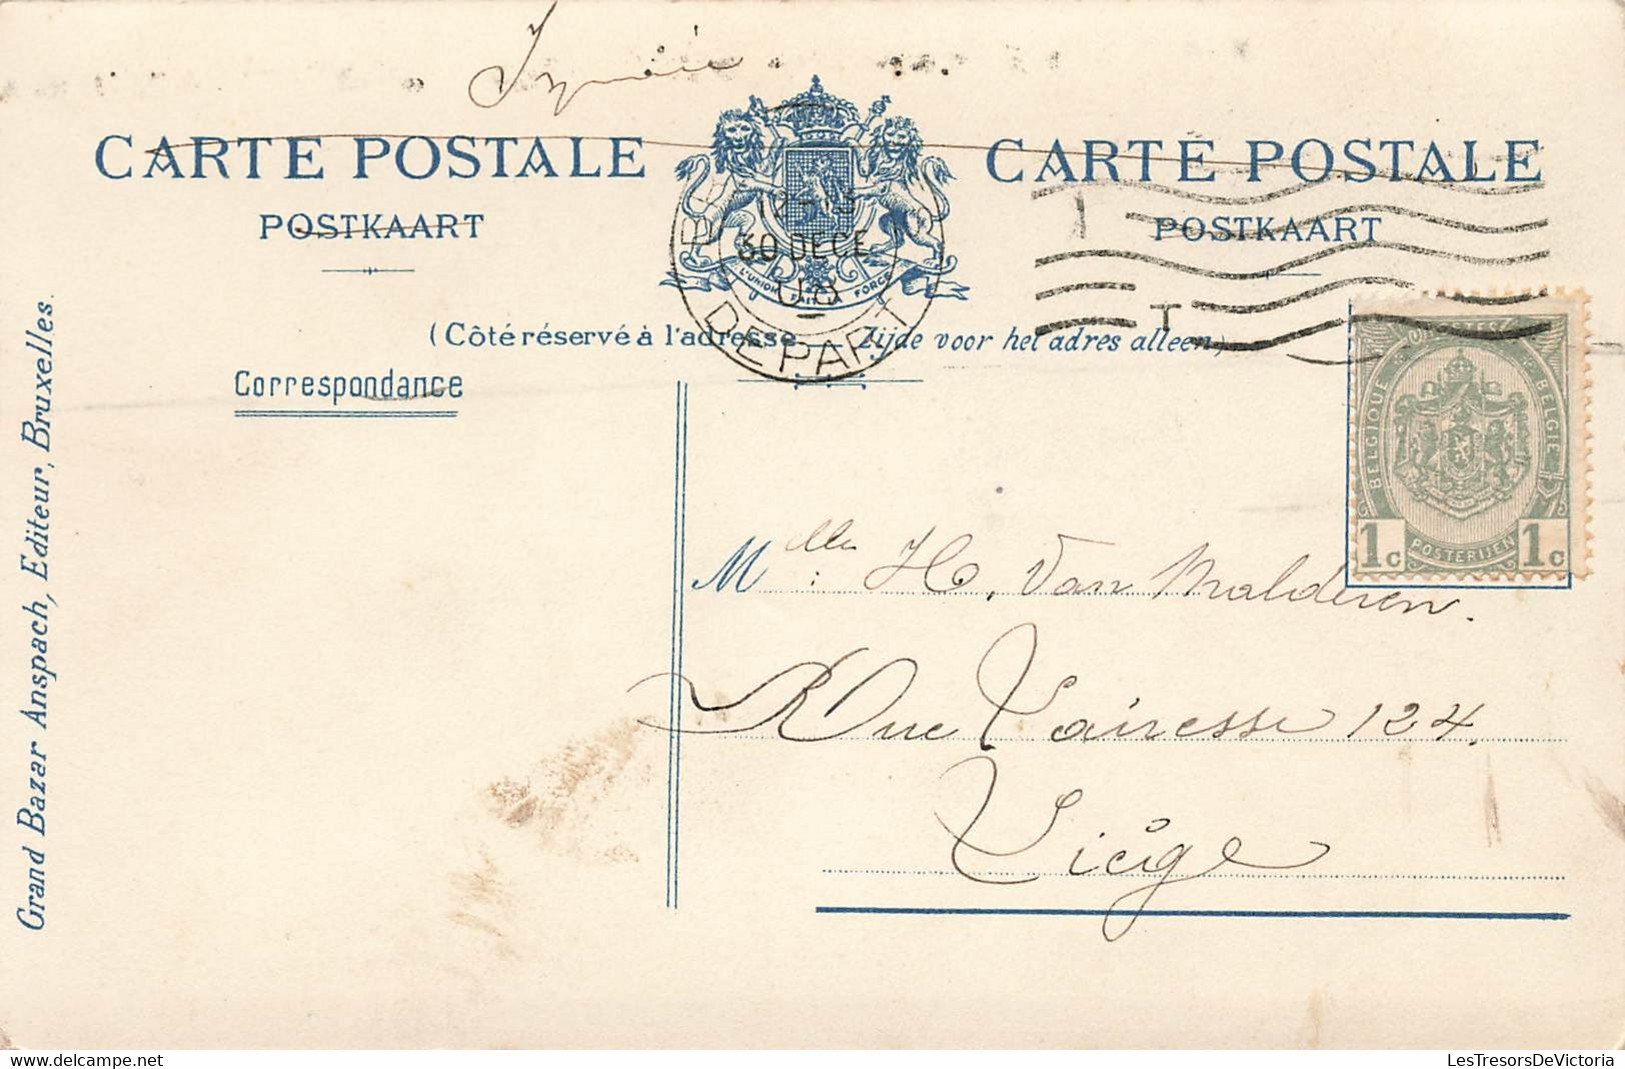 Imprimé
CARTE POSTALE
POSTKAART
L'UNION FAIT LA FORCE
CARTE POSTALE
POSTKAART
12-13
30 DECE
08
DEPART
T
(Côté réservé à l'adresse — Zijde voor het adres alleen)
Correspondance
BELGIQUE POSTES BELGIË
1c POSTERIJEN 1c
Mlle : H. Van Malderen.
Rue Vairesse 124.
Liège
Grand Bazar Anspach, Editeur, Bruxelles.
LesTresorsDeVictoria